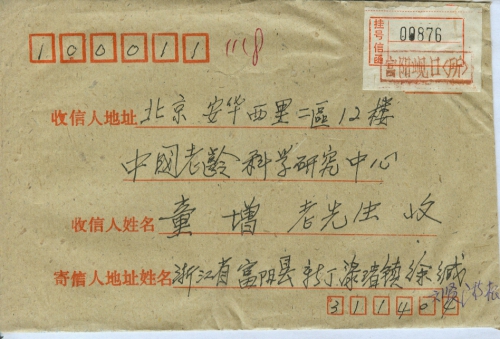 100011 1118
挂号信函
00876
富阳岘口(所)
收信人地址 北京 安华西里二區12楼
中国老龄科学研究中心
收信人姓名 童增 老先生 收
寄信人地址姓名 浙江省富阳县新丁渌渚镇徐缄
311404